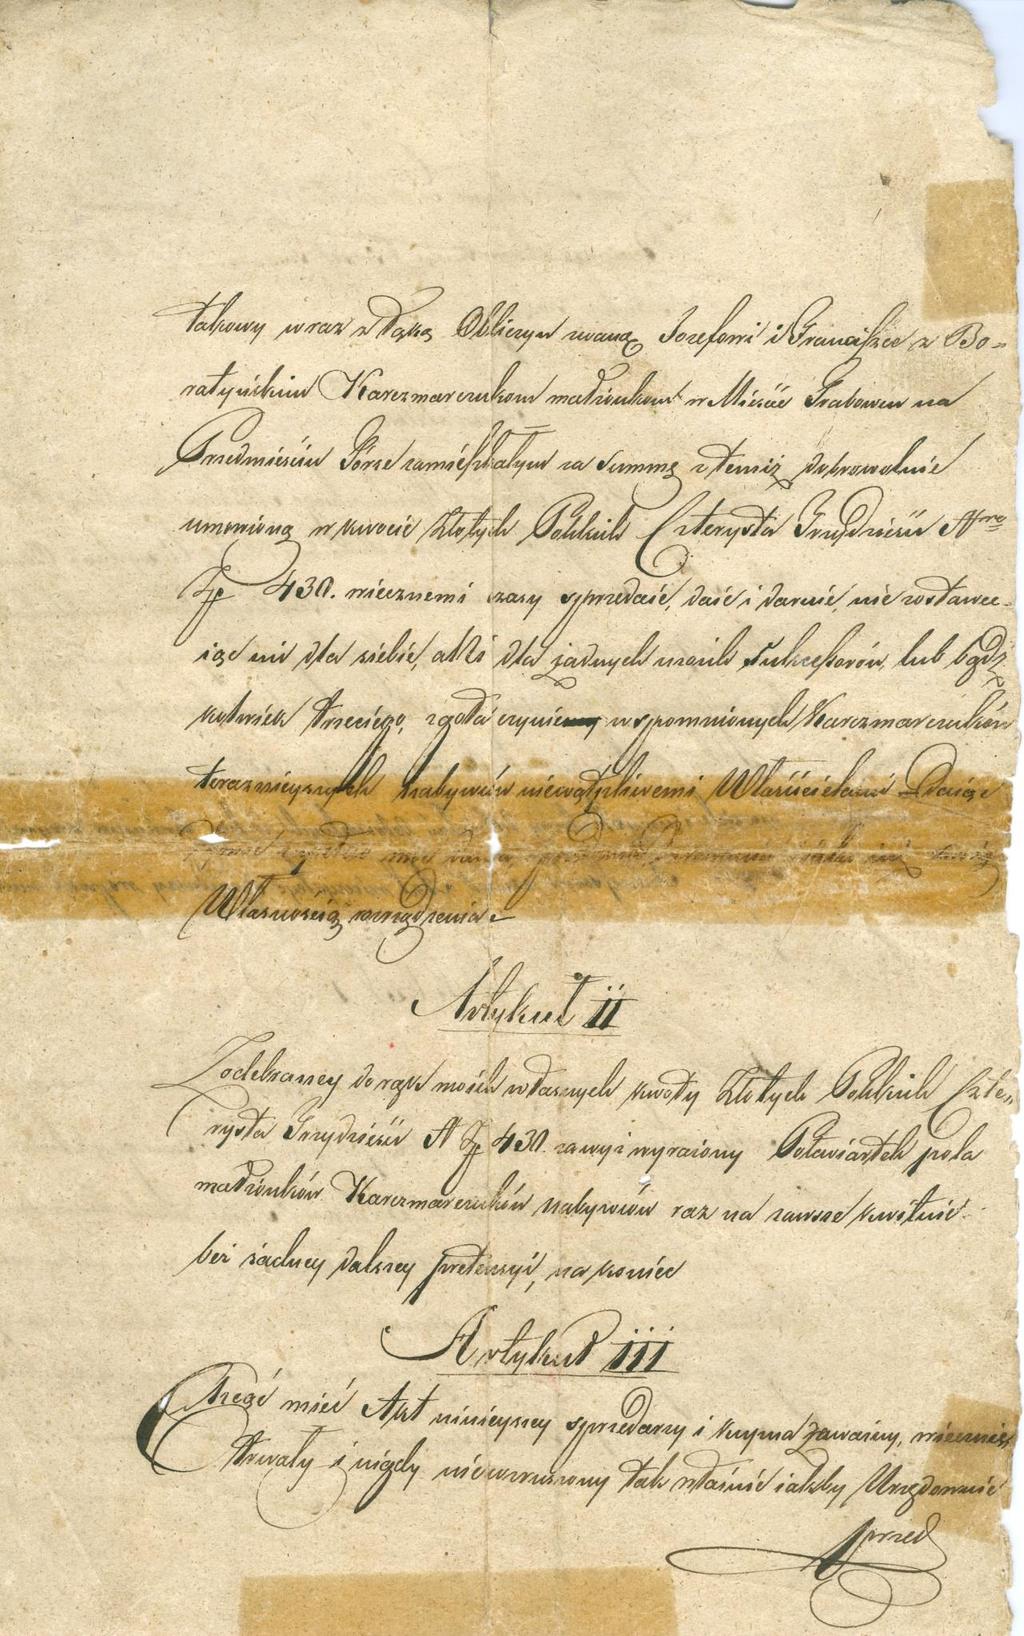 takowy wraz z Łąką Obliczyn zwaną Jozefowi i Franciszce z Bo=
ratyńskich Karczmarczukom małżonkom w Mieście Grabowcu na
Przedmieściu Górze zamieszkałym za summę z temiż dobrowolnie
umowioną w kwocie Złotych Polskich Czterysta Trzydzieści Nro
Zp 430. wiecznemi czasy sprzedaić, daić i daruić, nie zostawu=
iąc nic dla siebie, albo dla żadnych moich Sukcessorów, lub bądź
kolwiek trzeciego, zgoła czynie wspomnionych Karczmarczuków
teraznieyszych nabywców niewątpliwemi Właścicielami Daiąc
im
Własnością rozrządzenia
Artykuł II
Z odebraney do rąk moich własnych kwoty Złotych Polskich Czte=
rysta Trzydzieści N Zp 430. za wyż wyrażony Połćwiartek pola
małżonków Karczmarczuków nabywców raz na zawsze kwituie
bez żadney dalszey pretensyi, na koniec
Artykuł III
Chcąc mieć Akt ninieyszey sprzedarzy i kupna ważny, wiecznie
trwały i nigdy niewzruszony tak właśnie iakby Urzędownie
przed